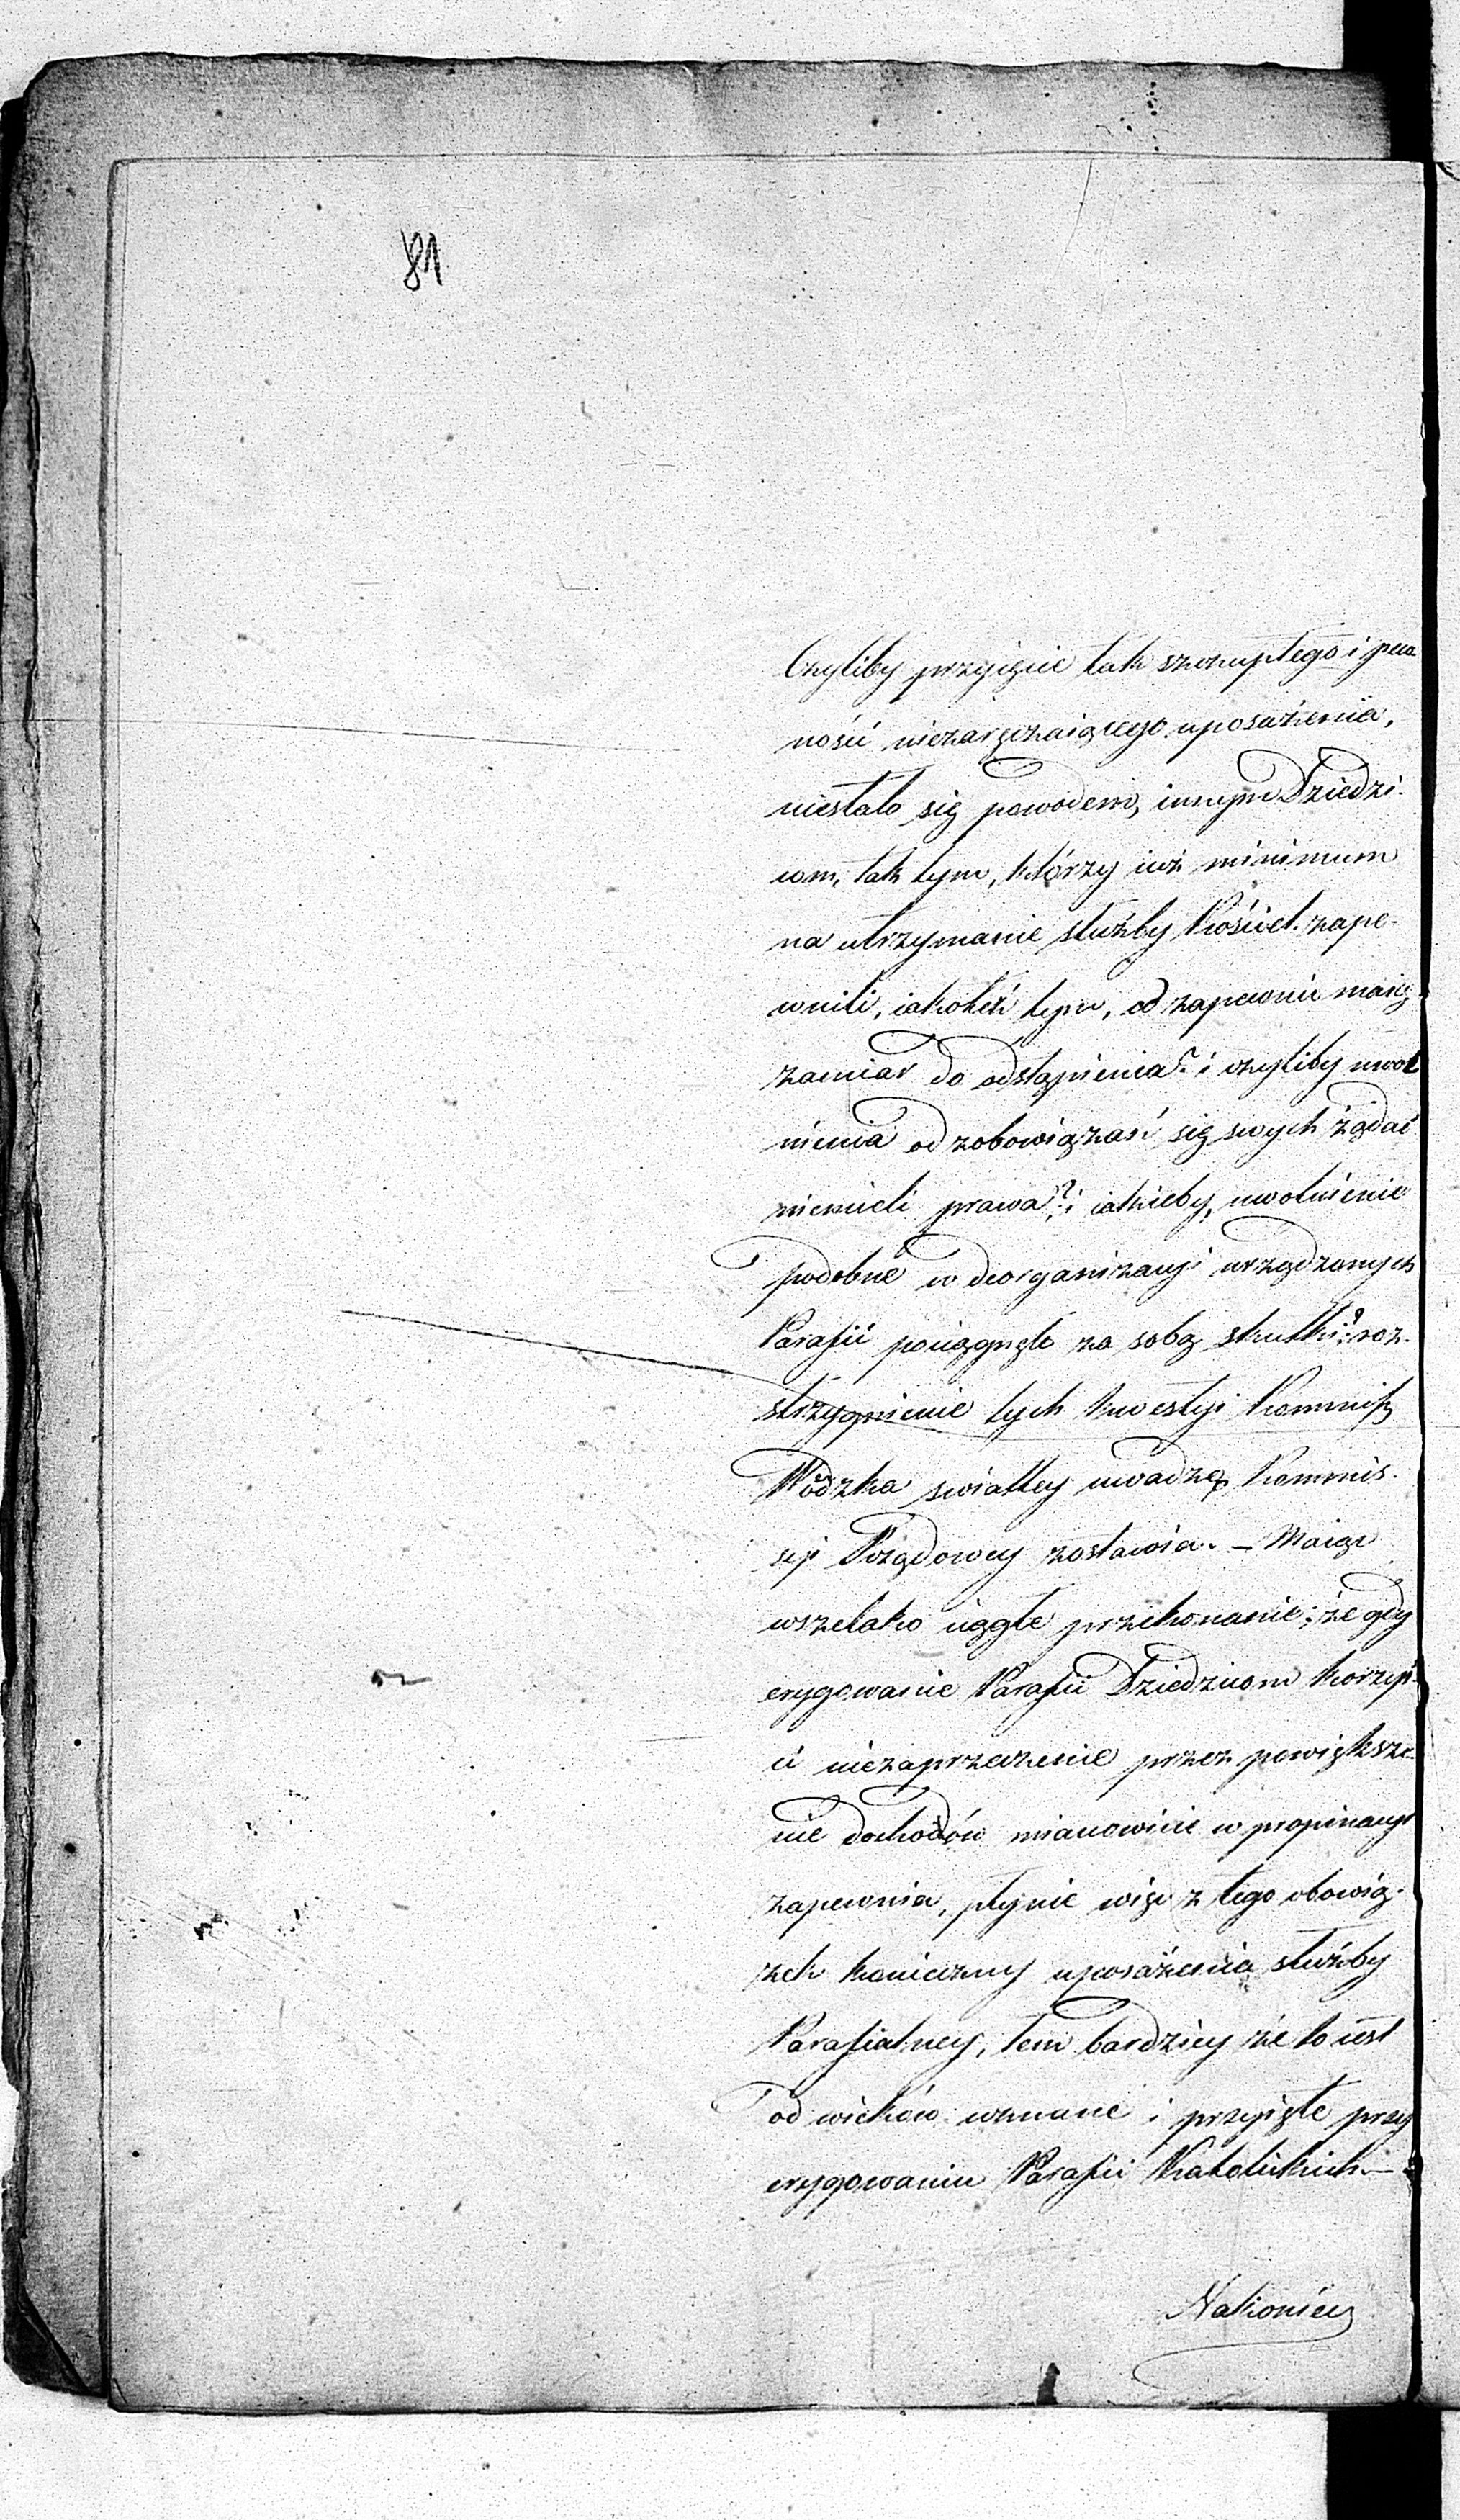 81
Czyliby przyięcie tak szczupłego i pew
ności niezaręczaiącego uposażenia,
niestało się powodem, innym Dziedzi-
com, tak tym, którzy iuż minimum
na utrzymanie służby Kościel. zape-
wnili, iakoteż tym, co zapewnić maią
zamiar do odstąpienia? i czyliby uwol
nienia od zobowiązań się swych żądać
niemieli prawa? i iakieby, uwolnienie
podobne w deorganizacyi urządzonych
Parafii pociągnęło za sobą skutki? roz-
strzygnienie tych kwestyi Kommiss
Wódzka światłey uwadze Kommis-
syi Rządowey zostawia. – Maiąc
wszelako ciągłe przekonanie; że gdy
erygowanie Parafii Dziedzicom korzyś-
ci niezaprzeczenie przez powiększe-
nie dochodów mianowicie w propinacyi
zapewnia, płynie więc z tego obowią-
zek konieczny uposażenia służby
Parafialney, tem bardziey że to iest
od wieków uznane i przyięte przy
erygowaniu Parafii Katolickich. –
Nakoniec